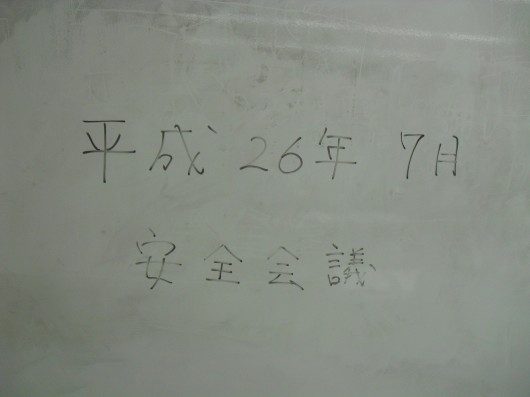 平成 26年 7月
安全会議